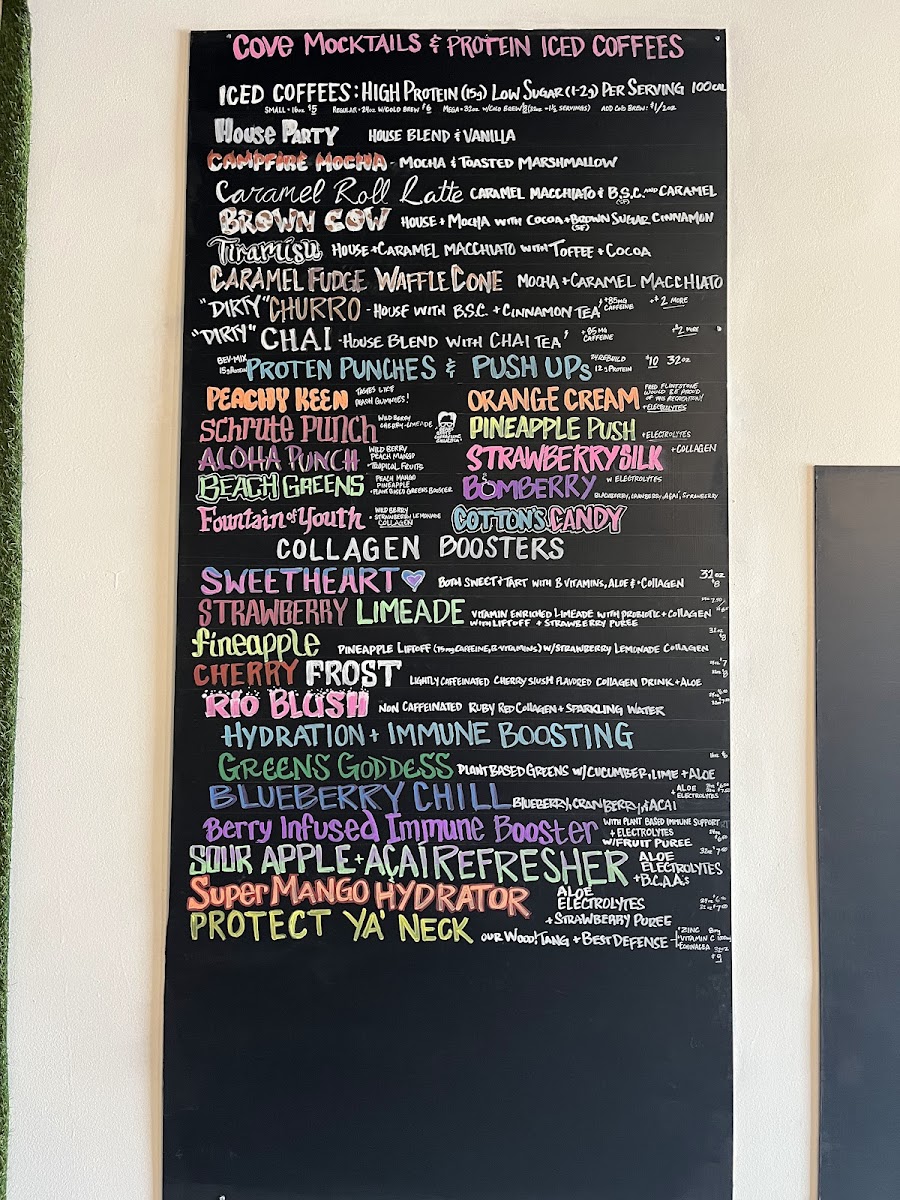 COVE MOCKTAILS & PROTEIN ICED COFFEES
ICED COFFEES: HIGH PROTEIN (15g) LOW SUGAR (1-2g) PER SERVING 100CAL
SMALL - 16oz $5 REGULAR - 24oz W/COLD BREW $6 MEGA - 32oz W/COLD BREW ADD COLD BREW: $1/2oz
HOUSE PARTY HOUSE BLEND & VANILLA
CAMPFIRE MOCHA - MOCHA & TOASTED MARSHMALLOW
Caramel Roll Latte CARAMEL MACCHIATO & B.S.C. AND CARAMEL
(SF)
BROWN COW HOUSE + MOCHA WITH COCOA + BROWN SUGAR CINNAMON
(SF)
Tiramisu HOUSE + CARAMEL MACCHIATO WITH TOFFEE + COCOA
CARAMEL FUDGE WAFFLE CONE MOCHA + CARAMEL MACCHIATO
"DIRTY" CHURRO - HOUSE WITH B.S.C. + CINNAMON TEA +85MG CAFFEINE +$2 MORE
"DIRTY" CHAI - HOUSE BLEND WITH CHAI TEA +85MG CAFFEINE +$2 MORE
BEV-MIX 15g PROTEIN PROTEN PUNCHES & PUSH UPs 24 REBUILD 12g PROTEIN $10 32oz
PEACHY KEEN TASTES LIKE PEACH GUMMIES!
ORANGE CREAM FRED FLINTSTONE WOULD BE PROUD OF THIS RECREATION! + ELECTROLYTES
Schrute Punch WILD BERRY CHERRY-LIMEADE
PINEAPPLE PUSH + ELECTROLYTES
ALOHA PUNCH WILD BERRY PEACH MANGO + TROPICAL FRUITS
STRAWBERRY SILK + COLLAGEN
BEACH GREENS PEACH MANGO PINEAPPLE + PLANT BASED GREENS BOOSTER
BOMBERRY W ELECTROLYTES BLACKBERRY, CRANBERRY, AÇAI, STRAWBERRY
Fountain of Youth - WILD BERRY STRAWBERRY LEMONADE COLLAGEN
COTTON'S CANDY
COLLAGEN BOOSTERS
SWEETHEART BOTH SWEET & TART WITH B VITAMINS, ALOE & COLLAGEN 32oz $8
STRAWBERRY LIMEADE VITAMIN ENRICHED LIMEADE WITH PROBIOTIC + COLLAGEN
WITH LIFTOFF + STRAWBERRY PUREE
fineapple PINEAPPLE LIFTOFF (75mg CAFFEINE, B-VITAMINS) W/STRAWBERRY LEMONADE COLLAGEN 32oz $8
CHERRY FROST LIGHTLY CAFFEINATED CHERRY SLUSH FLAVORED COLLAGEN DRINK + ALOE
RIO BLUSH NON CAFFEINATED RUBY RED COLLAGEN + SPARKLING WATER
HYDRATION + IMMUNE BOOSTING
GREENS GODDESS PLANT BASED GREENS W/CUCUMBER, LIME + ALOE
BLUEBERRY CHILL BLUEBERRY, CRANBERRY, & ACAI + ALOE ELECTROLYTES
Berry Infused Immune Booster WITH PLANT BASED IMMUNE SUPPORT
+ ELECTROLYTES
W/FRUIT PUREE
SOUR APPLE + AÇAI REFRESHER ALOE
ELECTROLYTES
+ B.C.A.A.s
Super MANGO HYDRATOR ALOE
ELECTROLYTES
+ STRAWBERRY PUREE
PROTECT YA' NECK OUR WOO! TANG + BEST DEFENSE ZINC VITAMIN C ECHINACEA 32oz $9